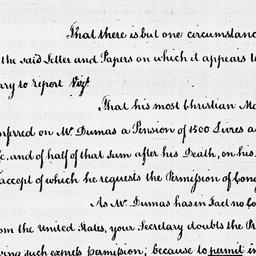 That there is but one circumstanc
the said Letter and Papers on which it appears to
ary to report Vizt
That his most Christian Ma
nferred on Mr Dumas a Pension of 1500 Livres a
e, and of half of that sum after his Death, on his
accept of which he requests the Permission of Cong
As Mr Dumas has in fact no Co
om the United States, your Secretary doubts the Pr
ving such express permission; because to permit in